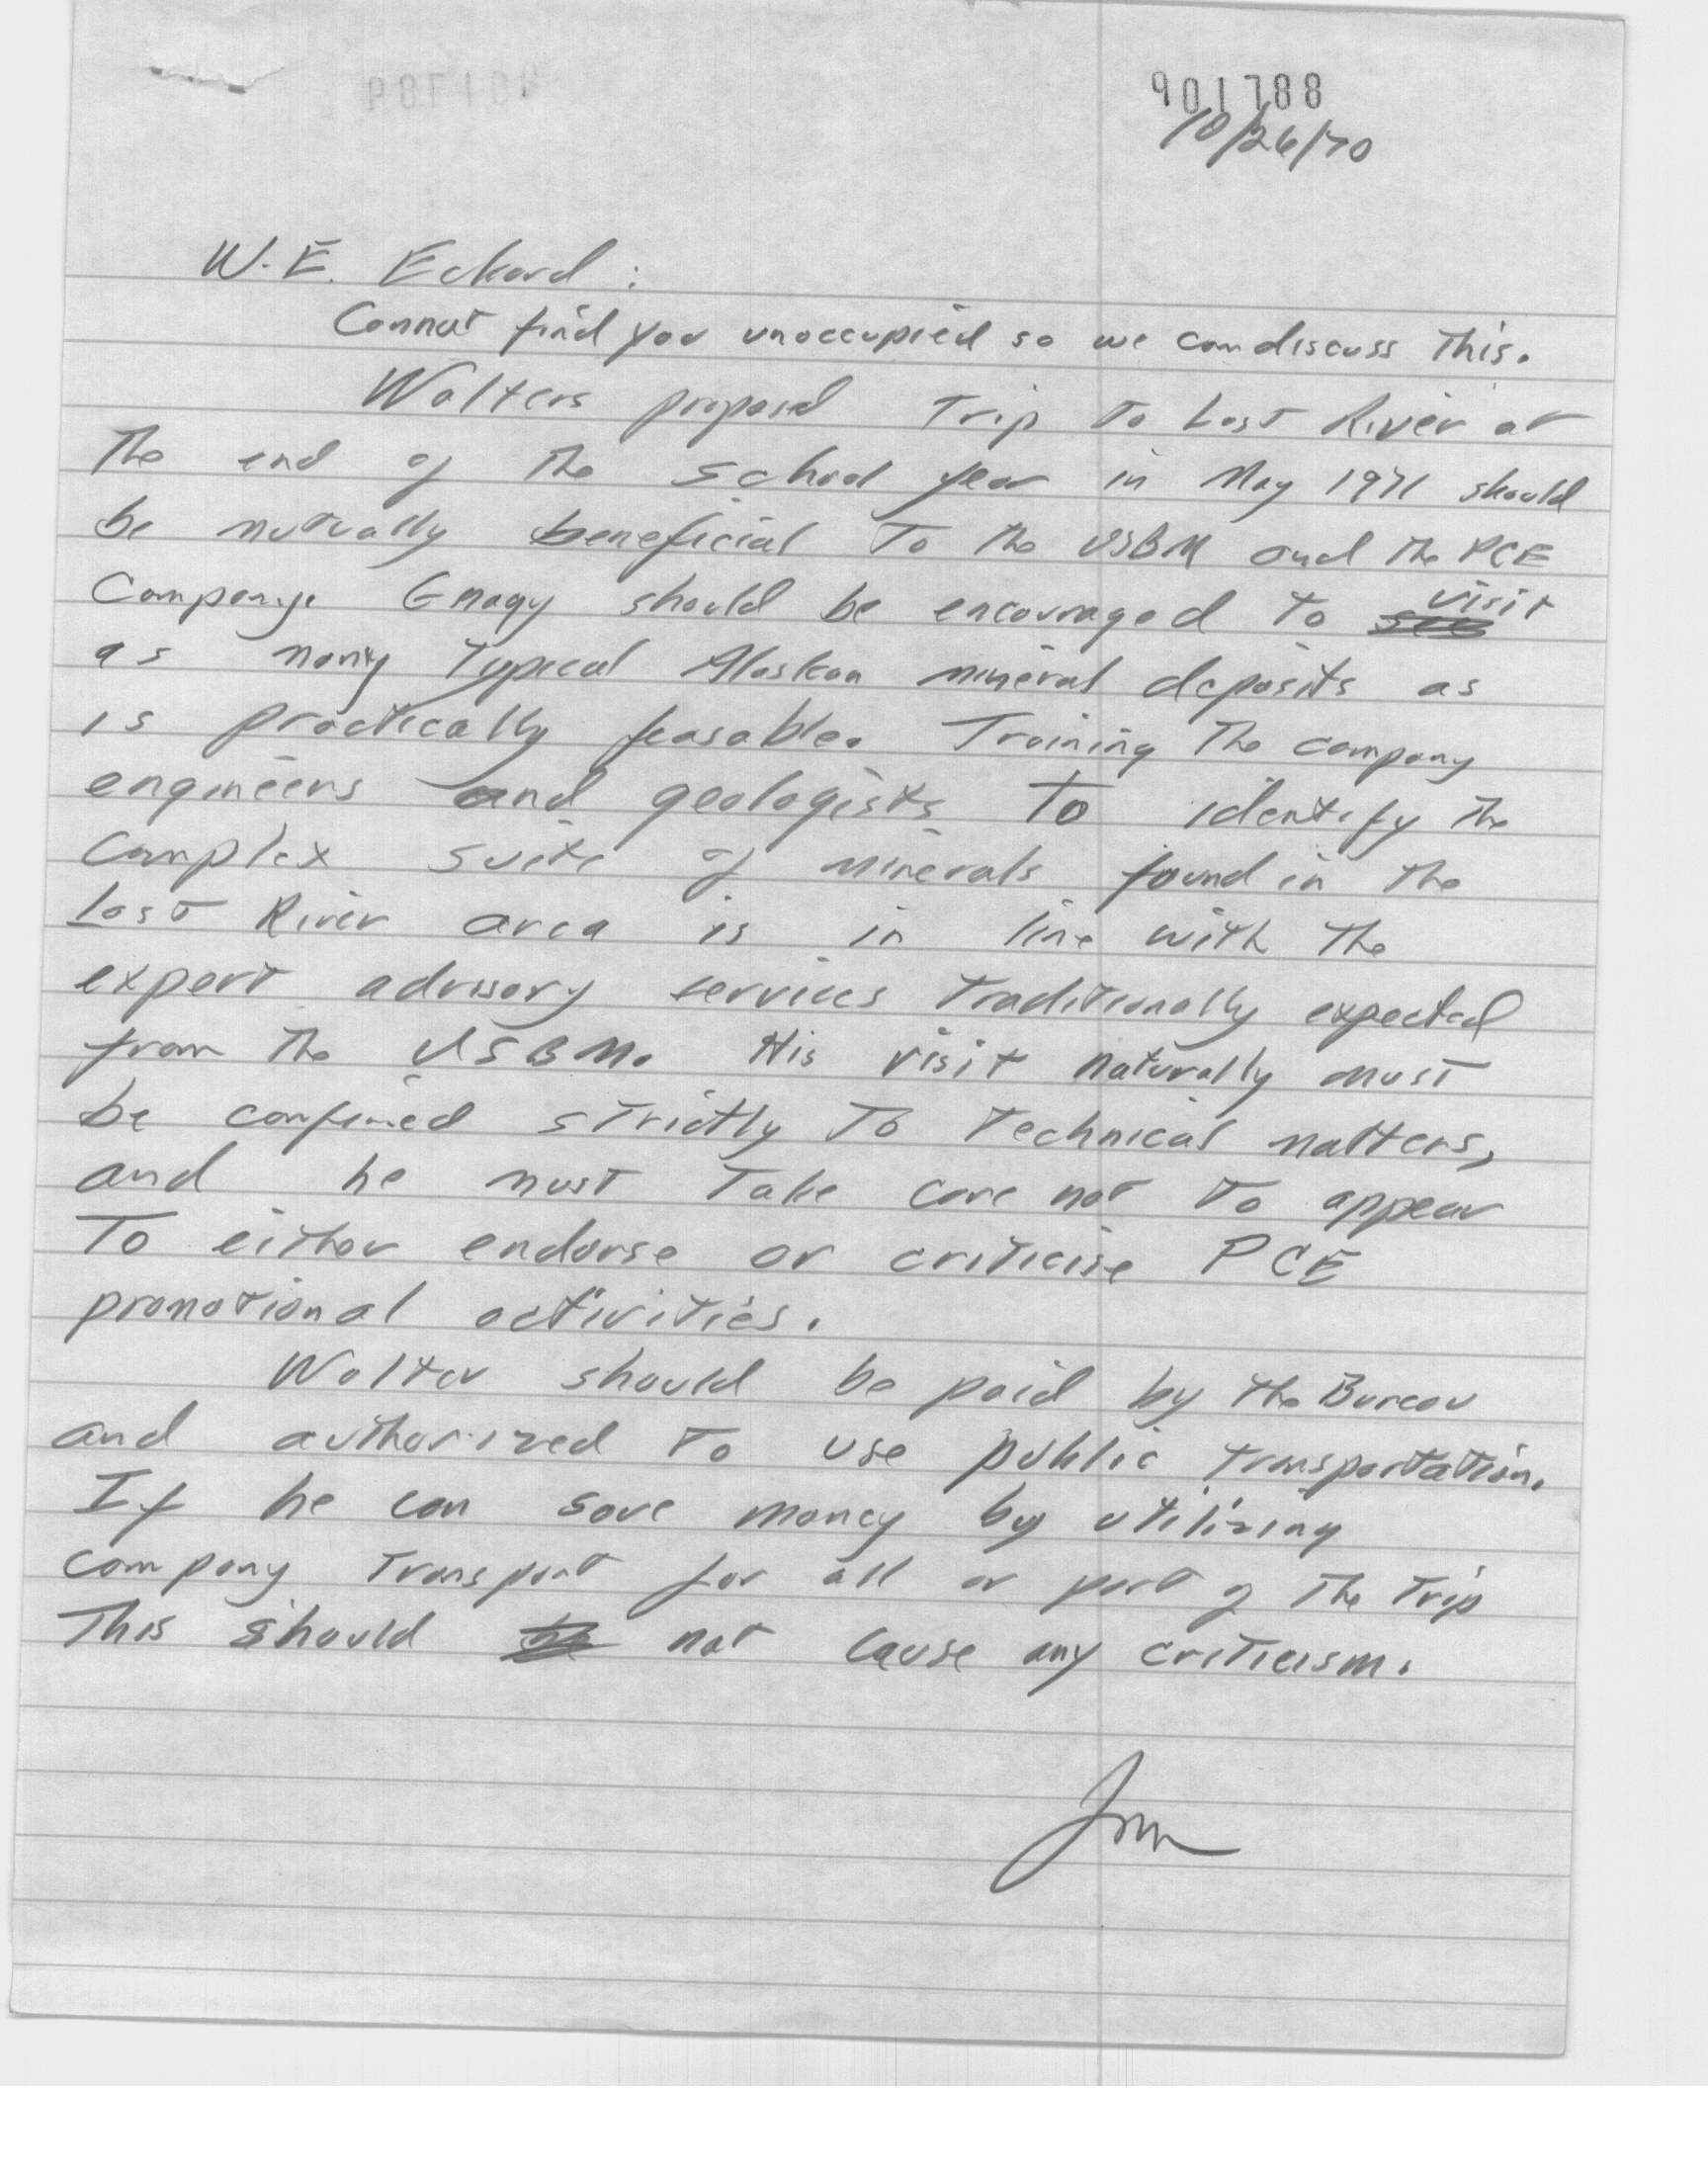 901788
10/26/70
W.E. Eckard:
Cannot find you unoccupied so we can discuss this.
Walters proposed trip to Lost River at
the end of the school year in May 1971 should
be mutually beneficial to the USBM and the PCE
Company. Gnagy should be encouraged to visit
as many typical Alaskan mineral deposits as
is practically feasable. Training the company
engineers and geologists to identify the
complex suite of minerals found in the
Lost River area is in line with the
expert advisory services traditionally expected
from the USBM. His visit naturally must
be confined strictly to technical matters,
and he must take care not to appear
to either endorse or criticise PCE
promotional activities.
Walter should be paid by the Bureau
and authorized to use public transportation.
If he can save money by utilizing
company transport for all or part of the trip
this should not cause any criticism.